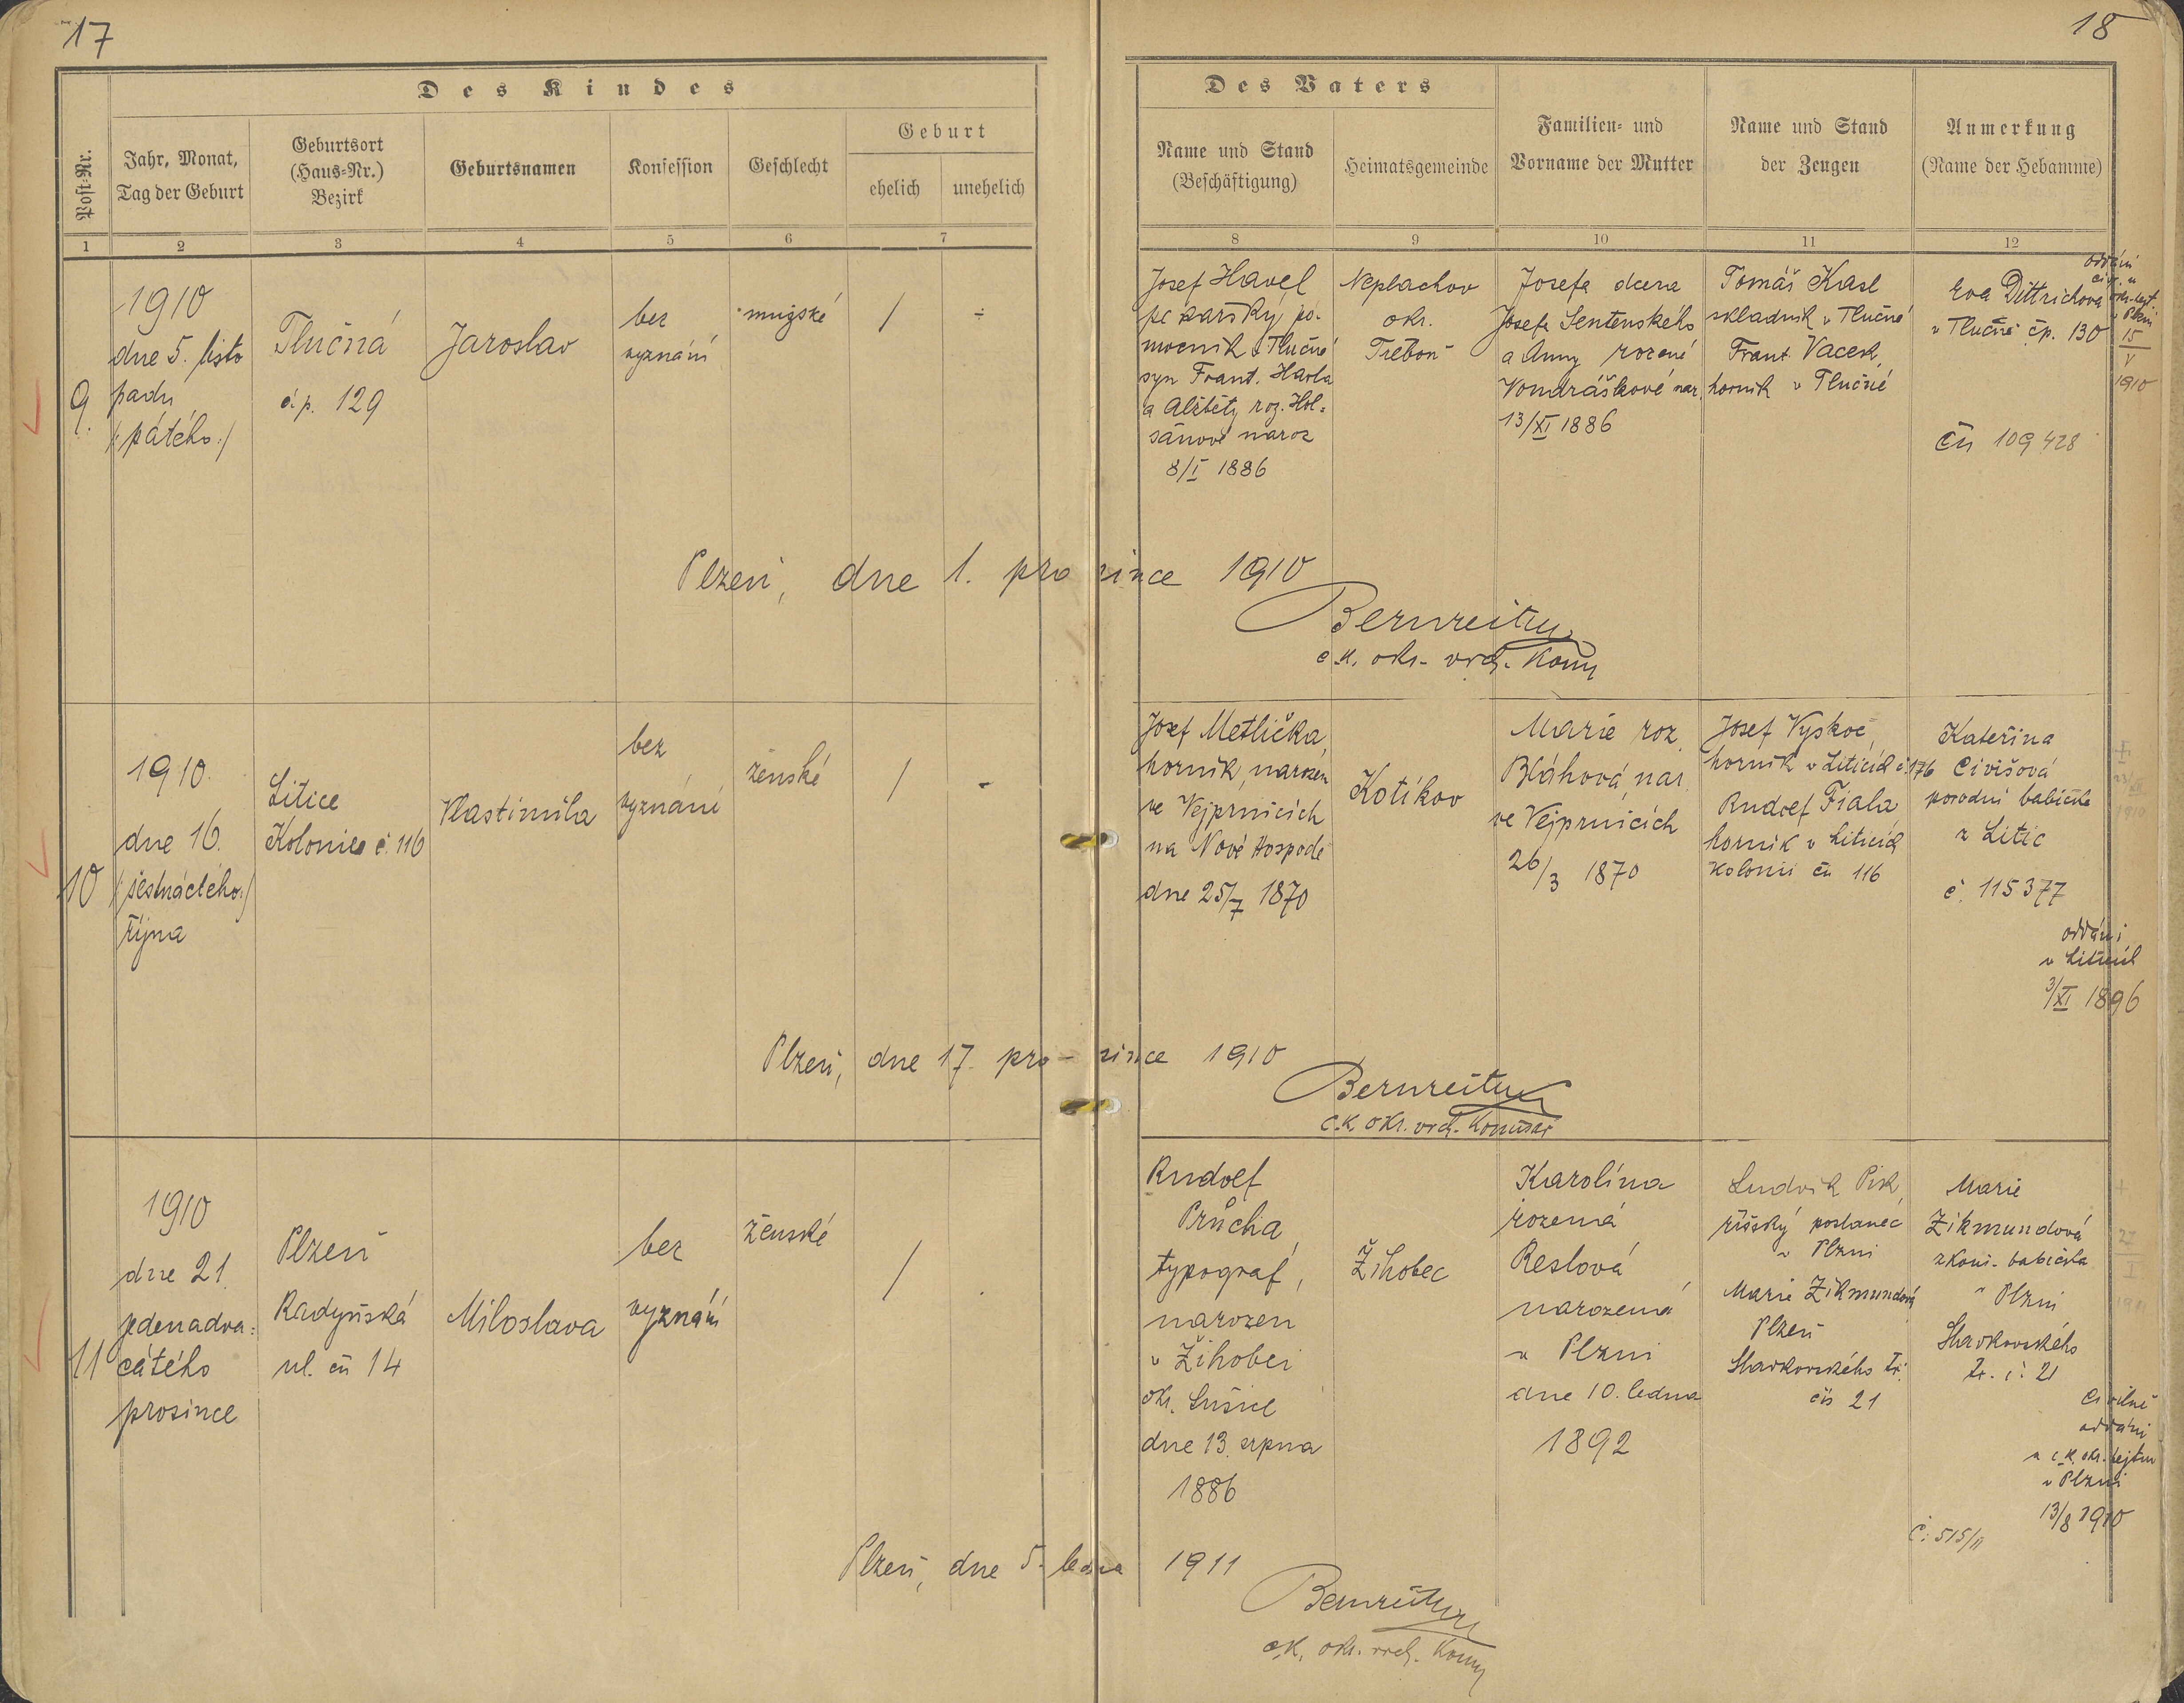 17
18
Des Kindes
Des Vaters
Post-Nr.
Jahr, Monat,
Tag der Geburt
Geburtsort
(Haus-Nr.)
Bezirk
Geburtsnamen
Konfession
Geschlecht
Geburt
ehelich
unehelich
Name und Stand
(Beschäftigung)
Heimatsgemeinde
Familien- und
Vorname der Mutter
Name und Stand
der Zeugen
Anmerkung
(Name der Hebamme)
1 2 3 4 5 6 7 8 9 10 11 12
9.
1910
dne 5. listo
padu
/:pátého:/
Tlučná
čp. 129
Jaroslav
bez
vyznání
mužské
/
÷
Josef Havel
pekařský po-
mocník v Tlučné
syn Frant. Havla
a Alžběty roz. Hol-
sánové naroz
8/I 1886
Neplachov
okr.
Třeboň
Josefa dcera
Josefa Sentenského
a Anny rozené
Vondráškové nar.
13/XI 1886
Tomáš Kasl
skladník v Tlučné
Frant. Vacek,
horník v Tlučné
Eva Dittrichova
v Tlučné čp. 130
čís 109428
oddáni
v Plzni
15
V
1910
Plzeň, dne 1. prosince 1910
Bernreiter
c.k. okr. vrch. Kom
10
1910
dne 16.
/:šestnáctého:/
října
Litice
Kolonie č. 116
Vlastimila
bez
vyznání
ženské
/
-
Josef Metlička,
horník, narozen
ve Vejprnicích
na Nové Hospodě
dne 25/7 1870
Kotíkov
Marie roz.
Bláhová, nar.
ve Vejprnicích
26/3 1870
Josef Vyskoč,
horník v Liticích č. 176
Rudolf Fiala
horník v Liticích
Kolonii čís 116
Kateřina
Civišová
porodní babička
z Litic
č. 115377
oddáni
v Liticích
3/XI 1896
Plzeň, dne 17. pro-since 1910
Bernreiter
c.k. okr. vrch. Komisař
11
1910
dne 21.
jedenadva-
cátého
prosince
Plzeň
Radyňská
ul. čís 14
Miloslava
bez
vyznání
ženské
/
Rudolf
Průcha,
typograf,
narozen
v Žihobci
okr. Sušice
dne 13. srpna
1886
Žihobec
Karolína
rozená
Reslová
narozená
v Plzni
dne 10. ledna
1892
Ludvík Pik,
říšský poslanec
v Plzni
Marie Zikmundová
Plzeň
Skarkovského tř.
čís 21
Marie
Zikmundová
zkouš. babička
v Plzni
Skarkovského
tř. č. 21
Civilně
oddáni
u c.k. okr. hejtm
v Plzni
13/8 1910
č. 515/11
Plzeň, dne 5. ledna 1911
Bernreiter
c.k. okr. vrch. Kom